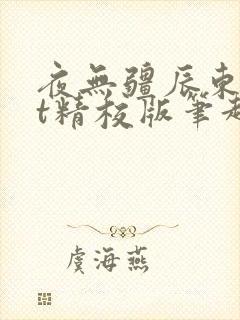 夜無疆辰東
t精校版筆趣
虞海燕